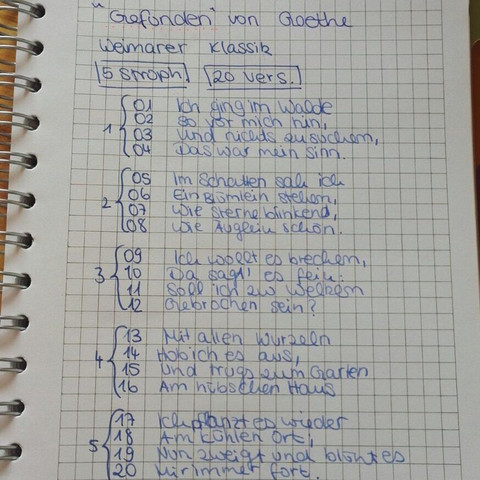 "Gefunden" von Goethe
Weimarer Klassik
5 stroph. 20 vers.
01 Ich ging im Walde
02 So vor mich hin,
1 03 Und nichts zu suchen,
04 Das war mein Sinn.
05 Im Schatten sah ich
2 06 Ein Blümlein stehen,
07 Wie Sterne blinkend,
08 Wie Äuglein schön.
09 Ich wollt es brechen,
3 10 Da sagt' es fein:
11 Soll ich zu welken
12 Gebrochen sein?
13 Mit allen Wurzeln
4 14 Hob ich es aus,
15 Und trugs zum Garten
16 Am hübschen Haus
17 Ich pflanzt es wieder
5 18 Am kühlen Ort;
19 Nun zweigt und blüht es
20 Mir immer fort.